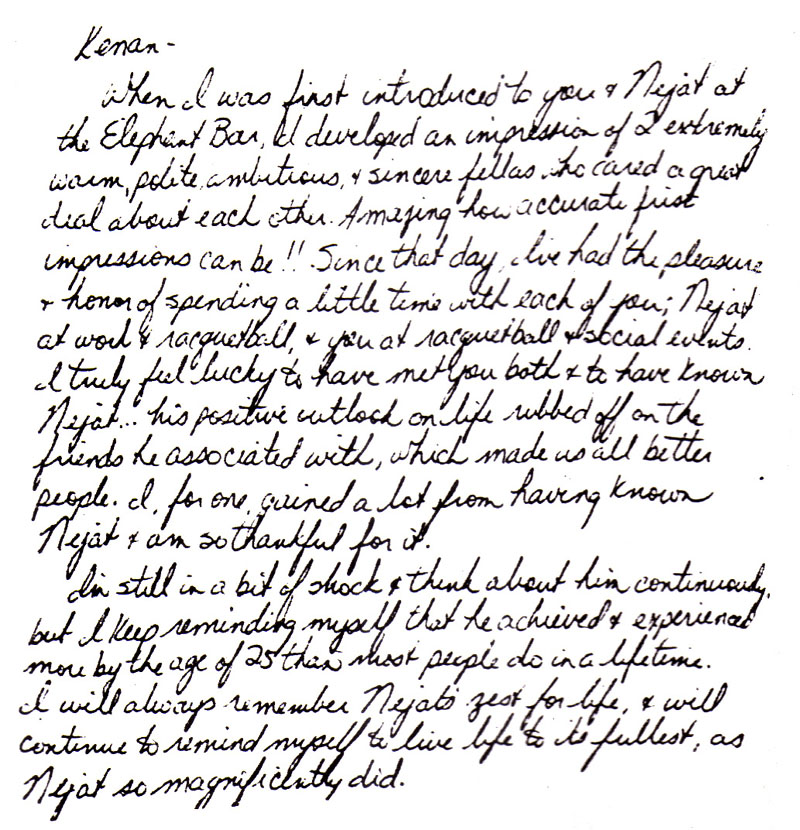 Kenan -
When I was first introduced to you & Nejat at
the Elephant Bar, I developed an impression of 2 extremely
warm, polite, ambitious, & sincere fellas who cared a great
deal about each other. Amazing how accurate first
impressions can be!! Since that day, I've had the pleasure
& honor of spending a little time with each of you; Nejat
at work & racquetball, & you at racquetball & social events.
I truly feel lucky to have met you both & to have known
Nejat... his positive outlook on life rubbed off on the
friends he associated with, which made us all better
people. I, for one, gained a lot from having known
Nejat & am so thankful for it.
I'm still in a bit of shock & think about him continuously,
but I keep reminding myself that he achieved & experienced
more by the age of 25 than most people do in a lifetime.
I will always remember Nejat's zest for life, & will
continue to remind myself to live life to its fullest, as
Nejat so magnificently did.